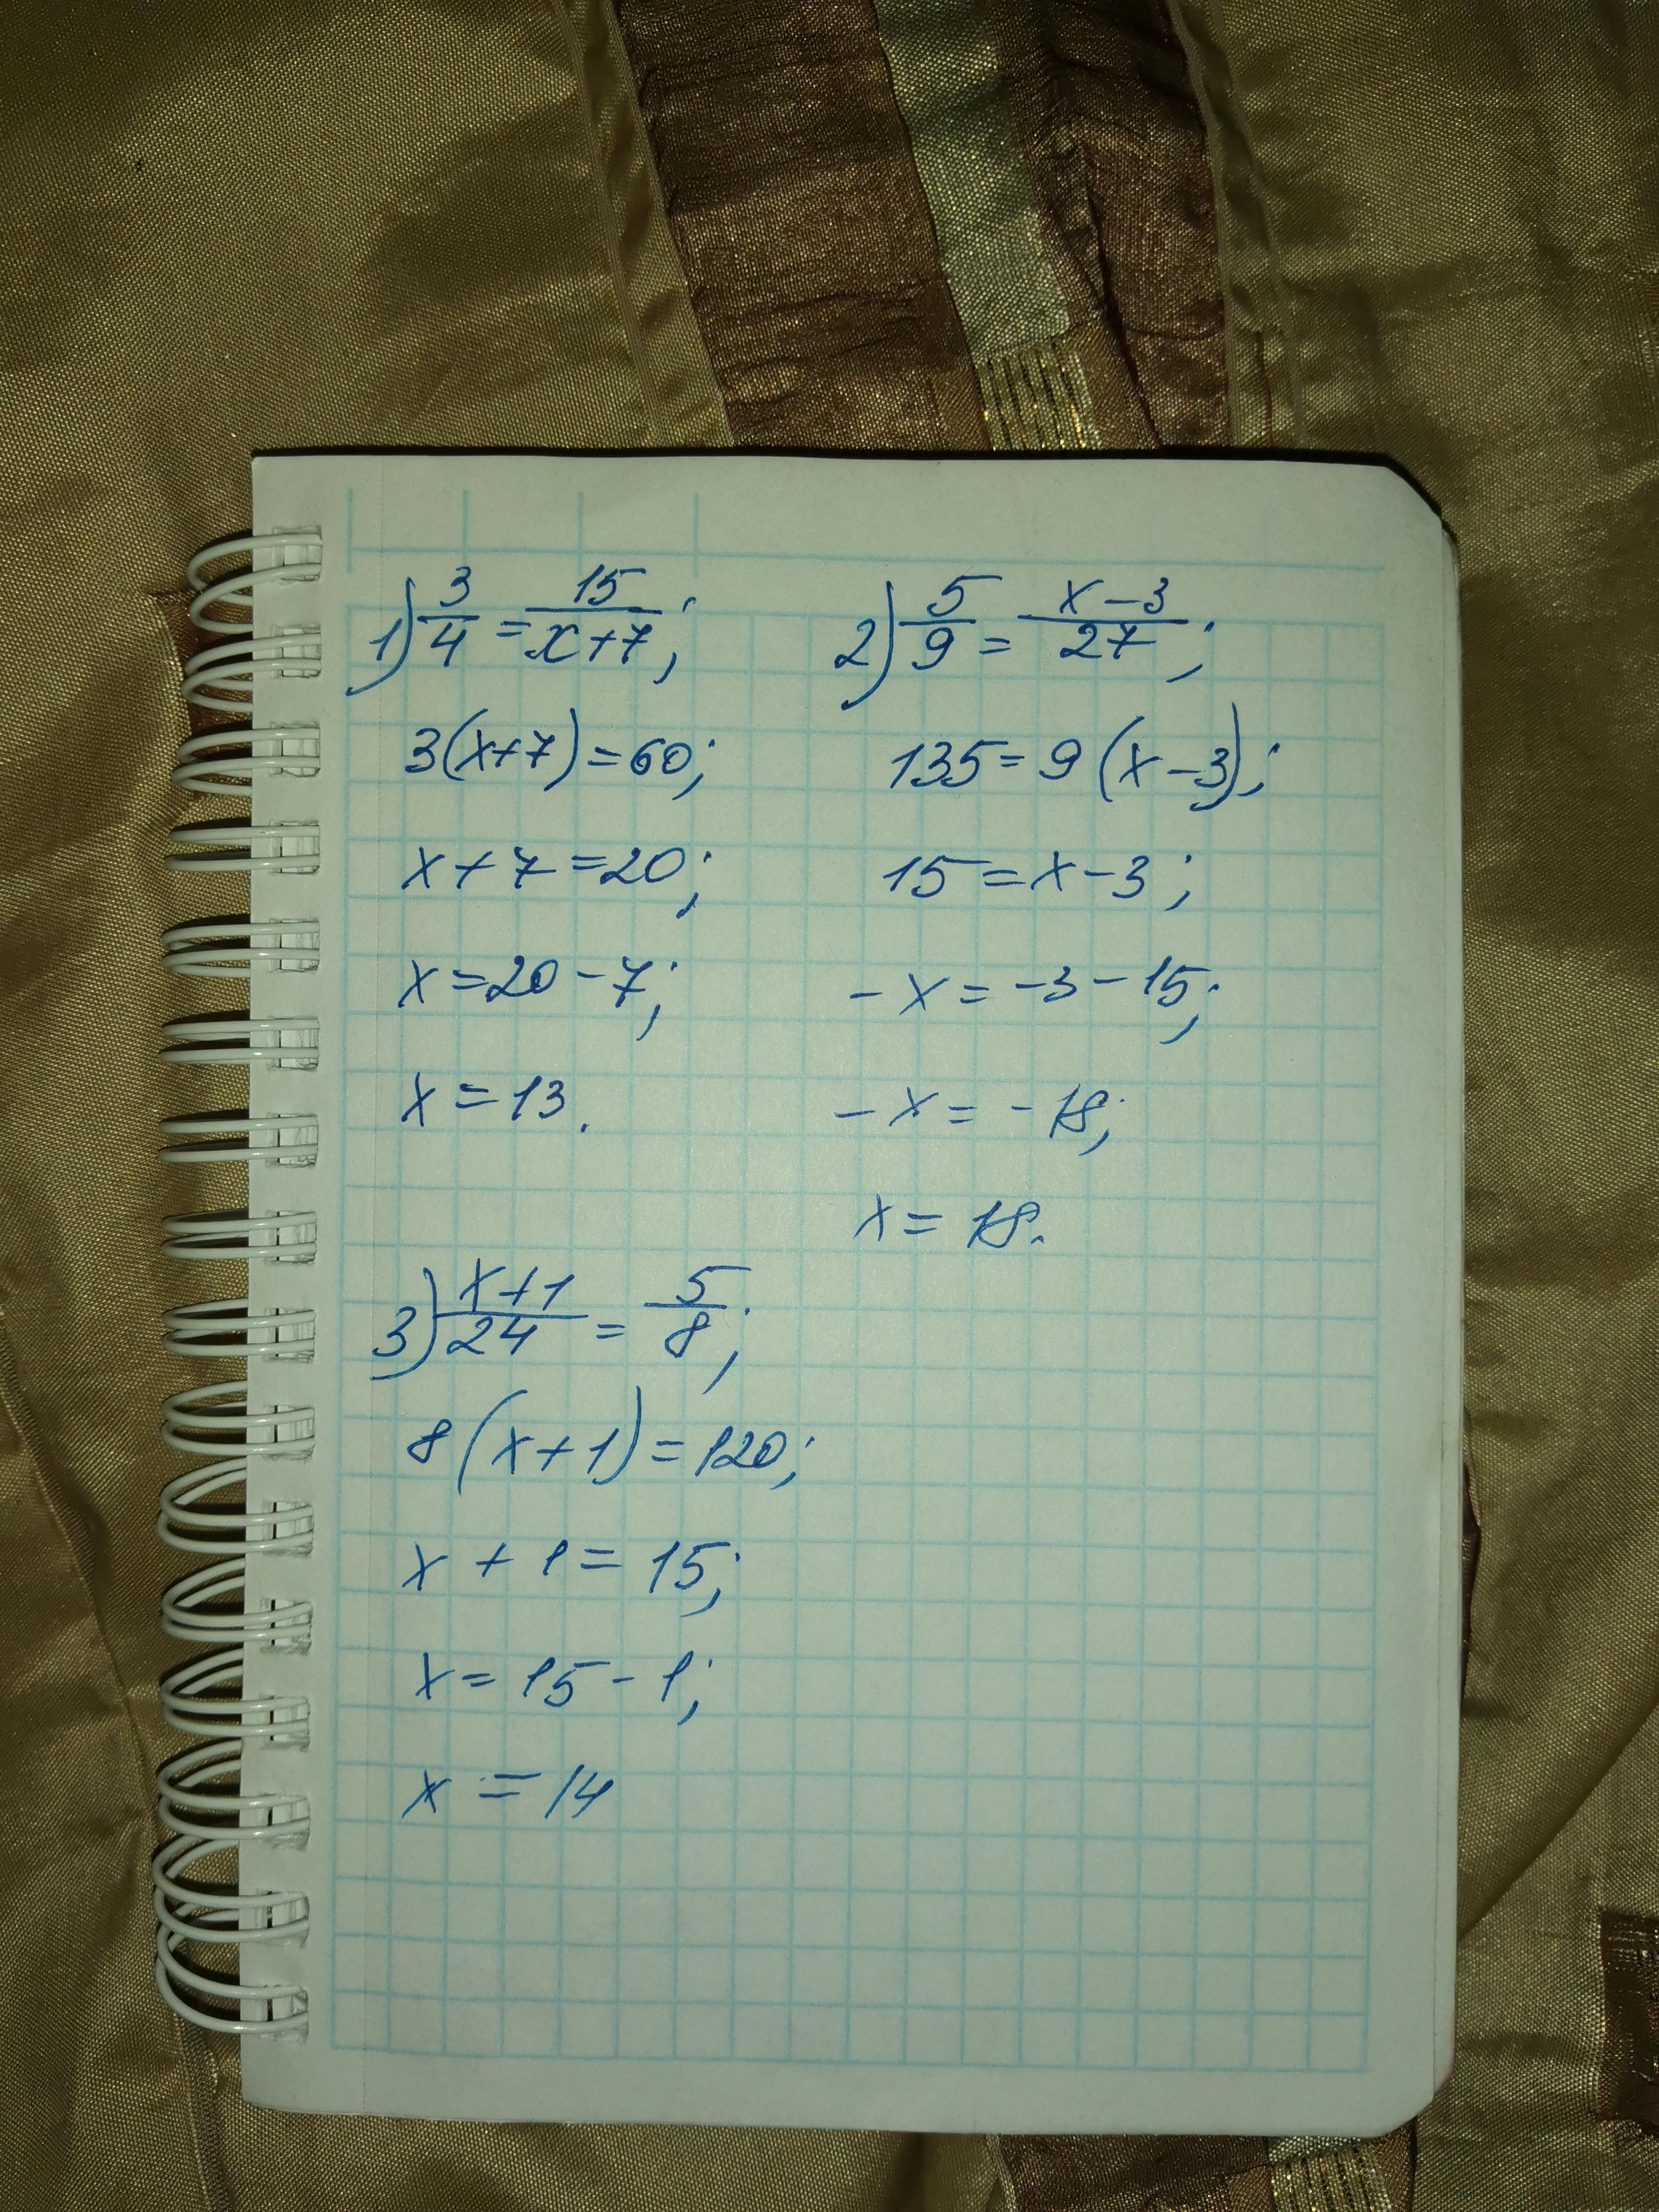 1) 3/4 = 15/(x+7);
3(x+7)=60;
x+7=20;
x=20-7;
x=13.
2) 5/9 = (x-3)/27;
135=9(x-3);
15=x-3;
-x=-3-15;
-x=-18;
x=18.
3) (x+1)/24 = 5/8;
8(x+1)=120;
x+1=15;
x=15-1;
x=14